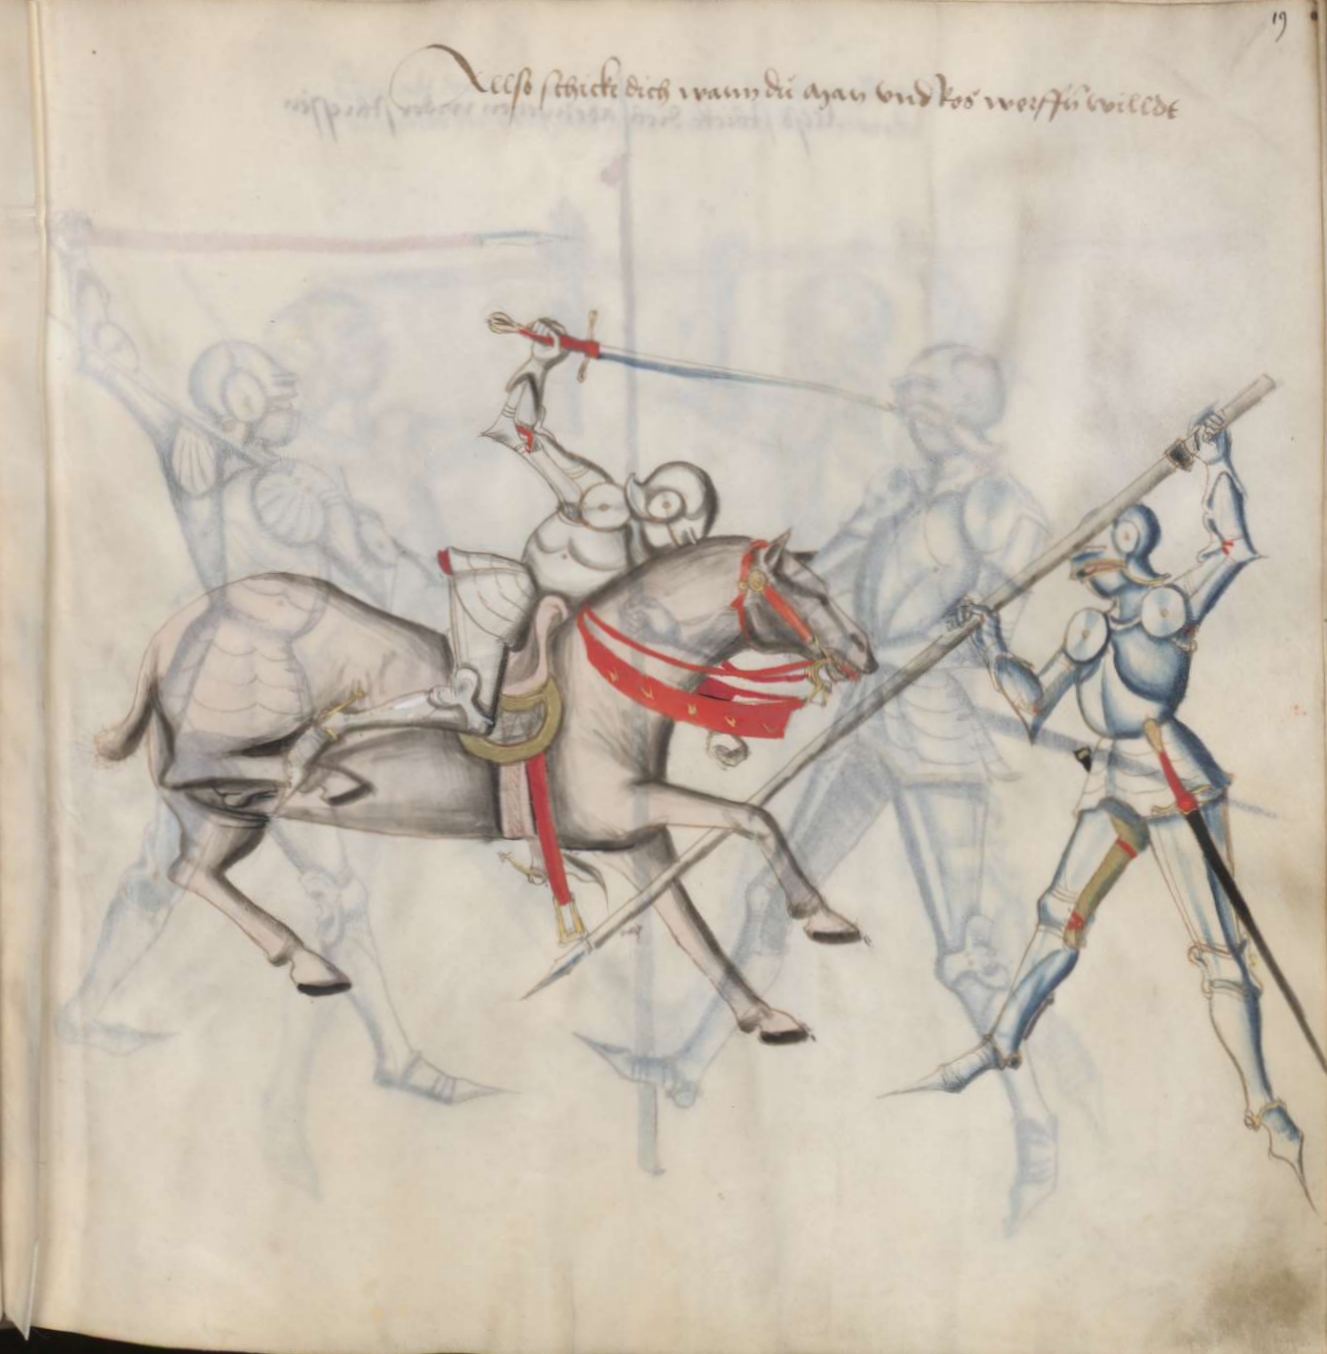 19
Allso schicke dich wann du man vnd Ros werffn willdt